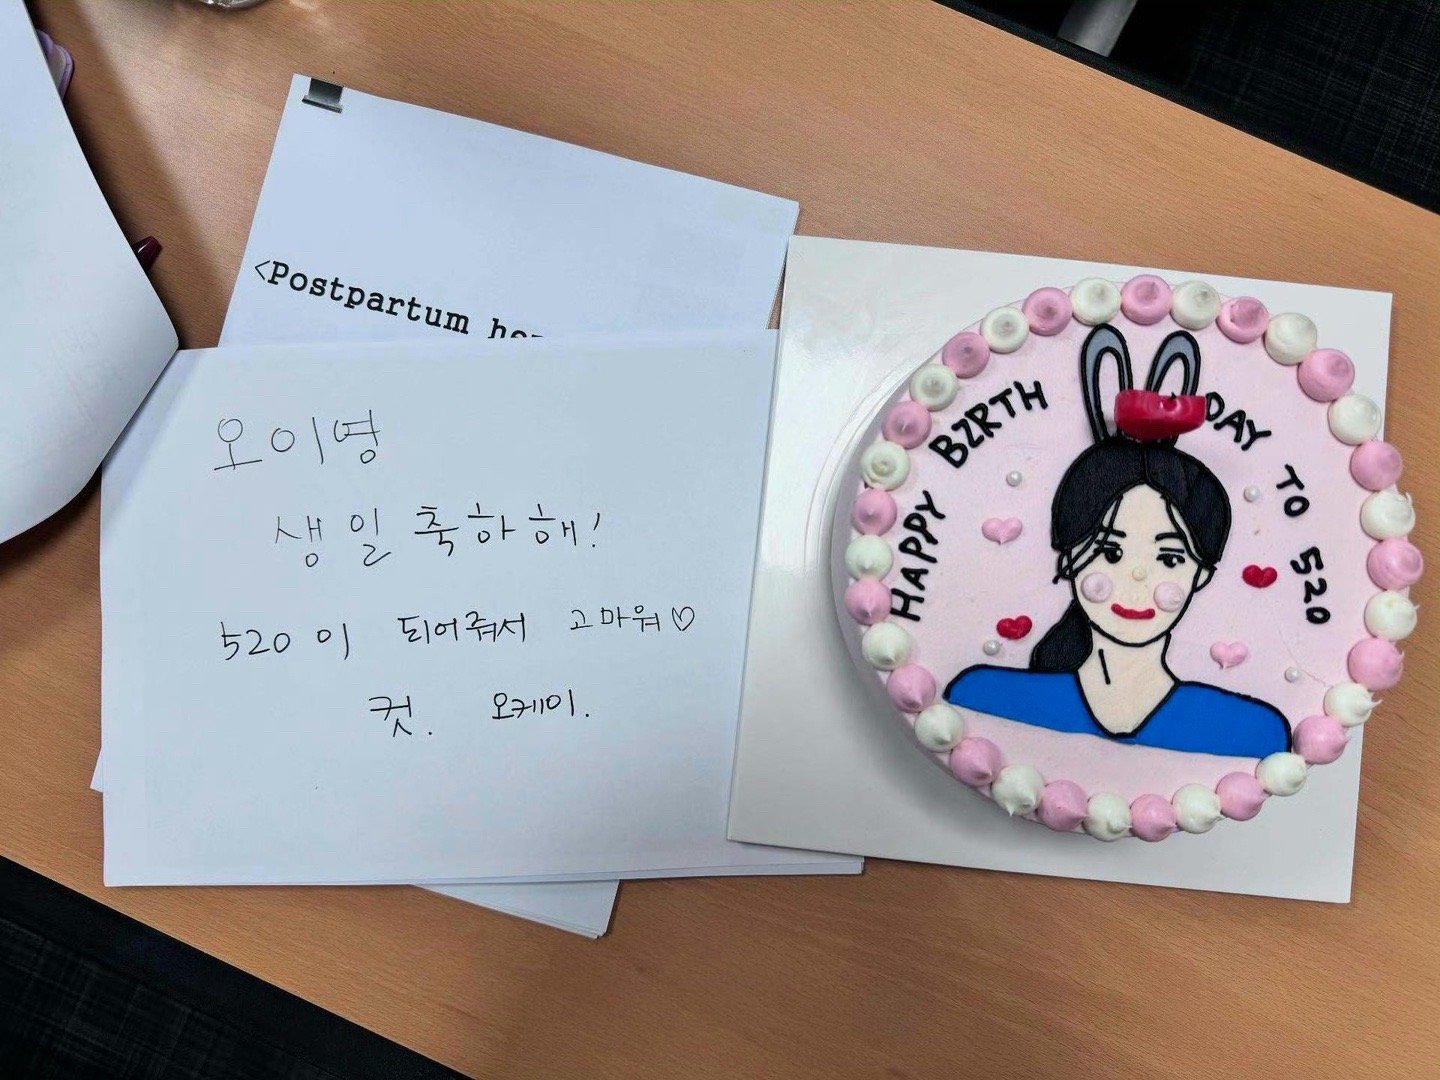 <Postpartum
오이영
생일 축하해!
520이 되어줘서 고마워♡
컷. 오케이.
HAPPY BZRTH DAY TO 520